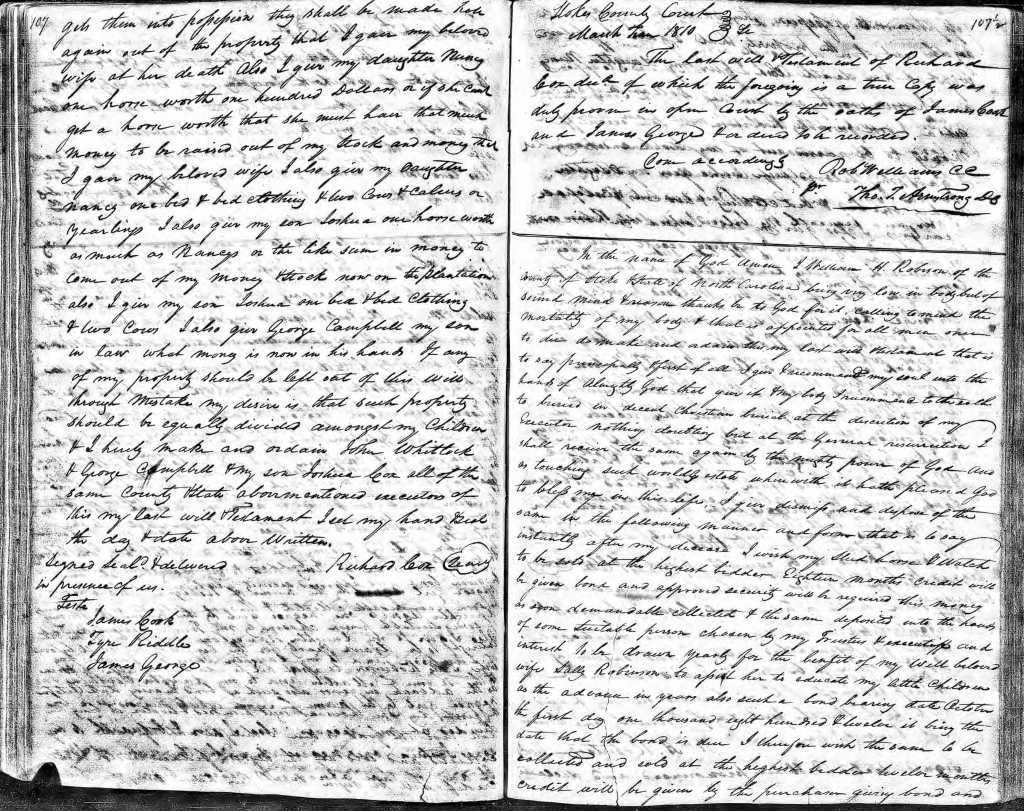 107
gets them into possession they shall be made hole
again out of the property that I gave my beloved
wife at her death Also I give my daughter Nancy
one horse worth one hundred Dollars or if she cant
get a horse worth that she must have that much
money to be raised out of my Stock and money that
I gave my beloved wife I also give my Daughter
Nancy one bed & bed clothing & two Cows & Calves or
yearlings I also give my son Joshua one horse worth
as much as Nancys or the like sum in money to
come out of my money & Stock now on the plantation
also I give my son Joshua one bed & bed Clothing
& two Cows I also give George Campbell my son
in law what money is now in his hands If any
of my property should be left out of this will
through Mistake my desire is that such property
should be equally divided amongst my Children
& I hereby make and ordain John Whitlock
& George Campbell & my son Joshua Cox all of the
same County & State abovementioned executors of
this my last will & Testament I set my hand & Seal
the day & date above Written.
Signed Seald & delivered Richard Cox
in presence of us.
Teste
James Cook
Tyre Riddle
James George
107½
Stokes County Court
March Term 1810
The last will & Testament of Richard
Cox decd of which the foregoing is a true Copy was
duly proven in open Court by the oaths of James Cook
and James George & ordered to be recorded.
accordingly
Rob Williams CC
Pr Tho. T. Armstrong DC
In the name of God Amen I William H. Robison of the
county of Stoke & State of North Carolina being very low in body but of
sound mind & reason thanks be to God for it, calling to mind the
mortality of my body & that it is appointed for all men once
to die do make and ordain this my last will & testament that is
to say principally & first of all I give & recommend my soul into the
hands of Almighty God that gave it & My body I recommend to the earth
to buried in decent Christian burial at the discretion of my
Executor nothing doubting but at the General resurrection I
shall receive the same again by the mighty power of God and
as touching such worldly estate wherewith it hath pleased God
to bless me in this life. I give dismiss and depose of the
same in the following manner and form that is to say
instantly after my decease I wish my Stud horse & Watch
to be sold at the highest bidder Eighteen months Credit will
be given bond and approved security will be required this money
as soon demandable collected & the same deposited into the hands
of some suitable person chosen by my Trustee & executrix and
interest to be drawn yearly for the benefit of my Well beloved
wife Sally Robinson to assist her to educate my little Children
as the advance in years also such a bond bearing date October
the first day one thousand eight hundred & twelve it being the
date that the bond is due I therefore wish the same to be
collected and sold at the highest bidder twelve months
credit will be given by the purchaser giving bond and